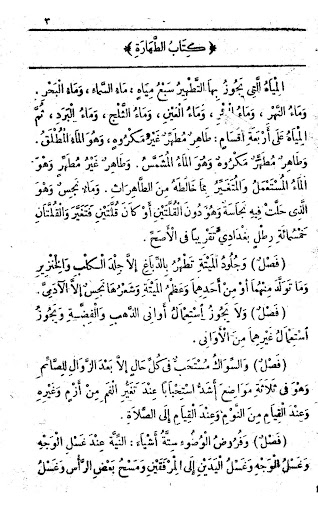 ٣
﴿ كِتَابُ الطَّهَارَةِ ﴾
المِيَاهُ الَّتِي يَجُوزُ بِهَا التَّطْهِيرُ سَبْعُ مِيَاهٍ، مَاءُ السَّمَاءِ، وَمَاءُ البَحْرِ،
وَمَاءُ النَّهْرِ، وَمَاءُ الْعَيْنِ، وَمَاءُ الثَّلْجِ، وَمَاءُ الْبَرَدِ، ثُمَّ
المِيَاهُ عَلَى أَرْبَعَةِ أَقْسَامٍ: طَاهِرٌ مُطَهِّرٌ غَيْرُ مَكْرُوهٍ، وَهُوَ المَاءُ المُطْلَقُ،
وَطَاهِرٌ مُطَهِّرٌ مَكْرُوهٌ وَهُوَ المَاءُ المُشَمَّسُ. وَطَاهِرٌ غَيْرُ مُطَهِّرٍ وَهُوَ
المَاءُ المُسْتَعْمَلُ وَالْمُتَغَيِّرُ بِمَا خَالَطَهُ مِنَ الطَّاهِرَاتِ. وَمَاءٌ نَجِسٌ وَهُوَ
الَّذِى حَلَّتْ فِيهِ نَجَاسَةٌ وَهُوَ دُونَ القُلَّتَيْنِ أَوْ كَانَ قُلَّتَيْنِ فَتَغَيَّرَ وَالقُلَّتَانِ
خَمْسُمِائَةِ رِطْلٍ بَغْدَادِيٍّ تَقْرِيبًا فِى الأَصَحِّ
( فَصْلٌ ) وَجُلُودُ المَيْتَةِ تَطْهُرُ بِالدِّبَاغِ إِلاَّ جِلْدَ الْكَلْبِ وَالخِنْزِيرِ
وَمَا تَوَلَّدَ مِنْهُمَا أَوْ مِنْ أَحَدِهِمَا وَعَظْمُ المَيْتَةِ وَشَعْرُهَا نَجِسٌ إِلاَّ الآدَمِيَّ.
( فَصْلٌ ) وَلاَ يَجُوزُ اسْتِعْمَالُ أَوَانِى الذَّهَبِ وَالْفِضَّةِ وَيَجُوزُ
اسْتِعْمَالُ غَيْرِهِمَا مِنَ الأَوَانِى.
( فَصْلٌ ) وَالسِّوَاكُ مُسْتَحَبٌّ فِى كُلِّ حَالٍ إِلاَّ بَعْدَ الزَّوَالِ لِلصَّائِمِ
وَهُوَ فِى ثَلاَثَةِ مَوَاضِعَ أَشَدُّ اسْتِحْبَابًا عِنْدَ تَغَيُّرِ الْفَمِ مِنْ أَزْمٍ وَغَيْرِهِ
وَعِنْدَ الْقِيَامِ مِنَ النَّوْمِ وَعِنْدَ الْقِيَامِ إِلَى الصَّلاَةِ
( فَصْلٌ ) وَفُرُوضُ الْوُضُوءِ سِتَّةُ أَشْيَاءَ: النِّيَّةُ عِنْدَ غَسْلِ الْوَجْهِ
وَغَسْلُ الْوَجْهِ وَغَسْلُ الْيَدَيْنِ إِلَى الْمِرْفَقَيْنِ وَمَسْحُ بَعْضِ الرَّأْسِ وَغَسْلُ